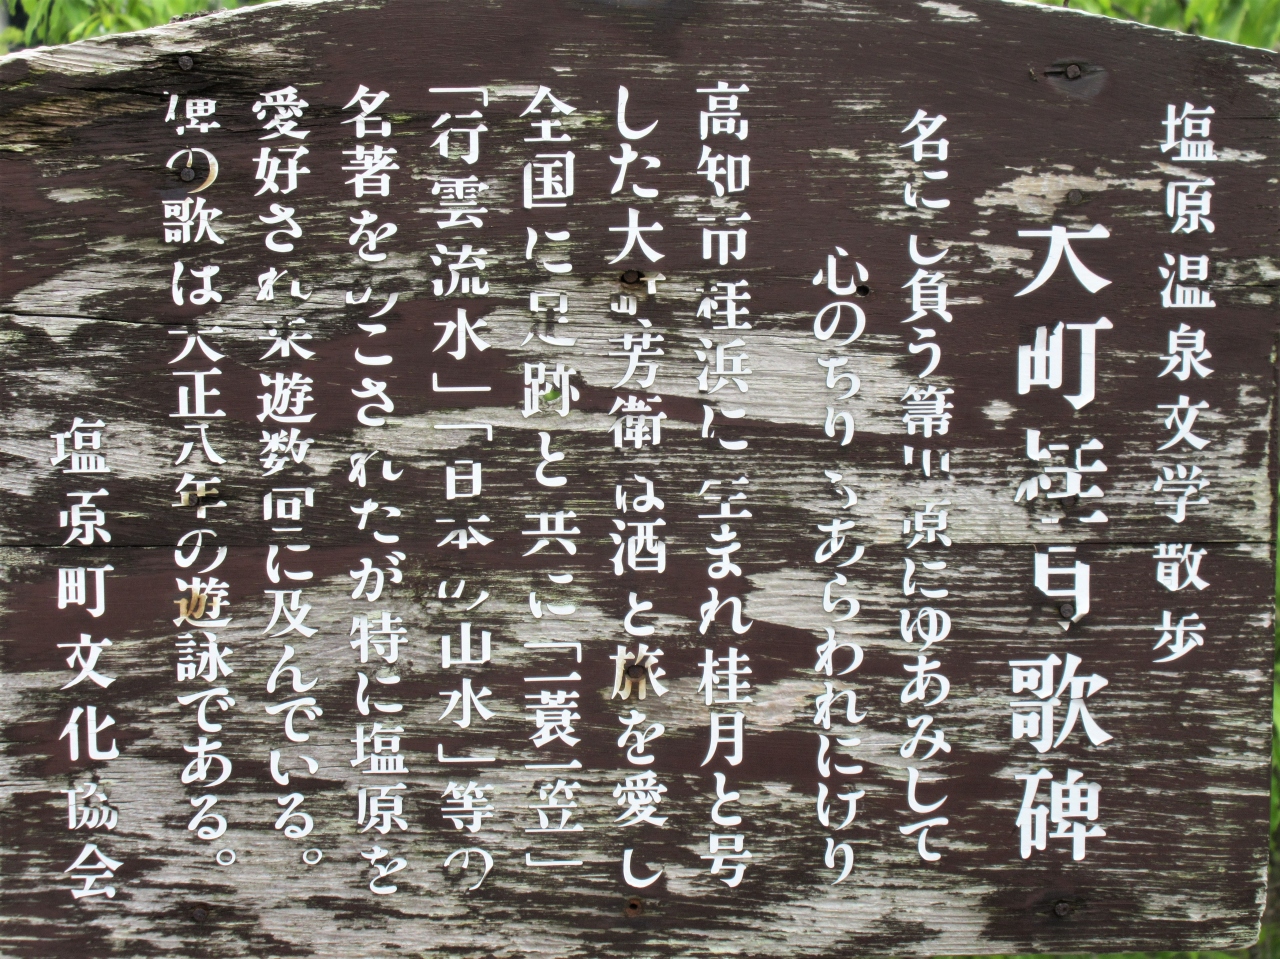 塩原温泉文学散歩
大町桂月歌碑
名にし負う箒川原にゆあみして
心のちりもあらわれにけり
高知市桂浜に生まれ桂月と号
した大町芳衛は酒と旅を愛し
全国に足跡と共に「一蓑一笠」
「行雲流水」「日本の山水」等の
名著をのこされたが特に塩原を
愛好され来遊数回に及んでいる。
碑の歌は大正八年の遊詠である。
塩原町文化協会